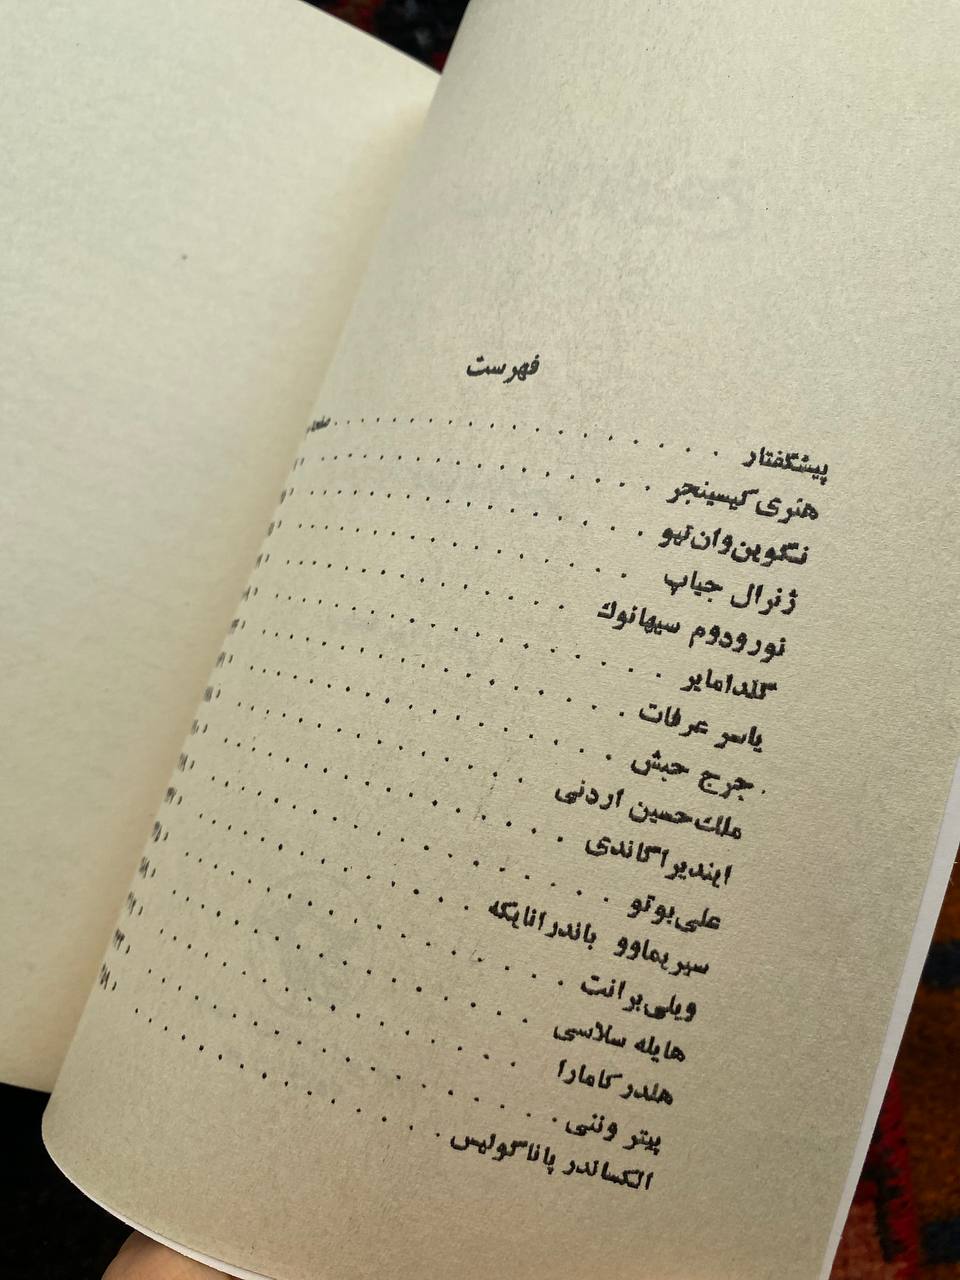 فهرست
پیشگفتار . . . . . . . . . . . . . . . . . صفحه
هنری کیسینجر
نگوین‌وان‌تیو
ژنرال جیاپ
نورودوم سیهانوك
گلدامایر
یاسر عرفات
جرج حبش
ملك‌حسین اردنی
ایندیرا گاندی
علی‌بوتو
سیریماوو باندرانایکه
ویلی‌برانت
هایله سلاسی
هلدر کامارا
پیتر وننی
الکساندر پاناگولیس